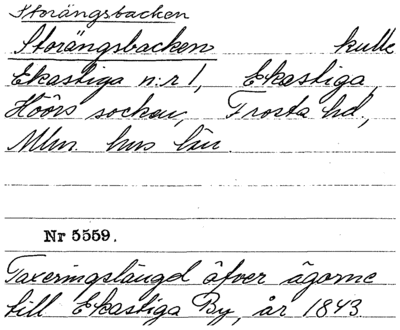 Storängsbacken
Storängsbacken kulle
Ekastiga n:r 1, Ekastiga,
Höörs socken, Frosta hd.,
Mlm. hus län.
Nr 5559.
Taxeringslängd öfver ägorne
till Ekastiga By, år 1843